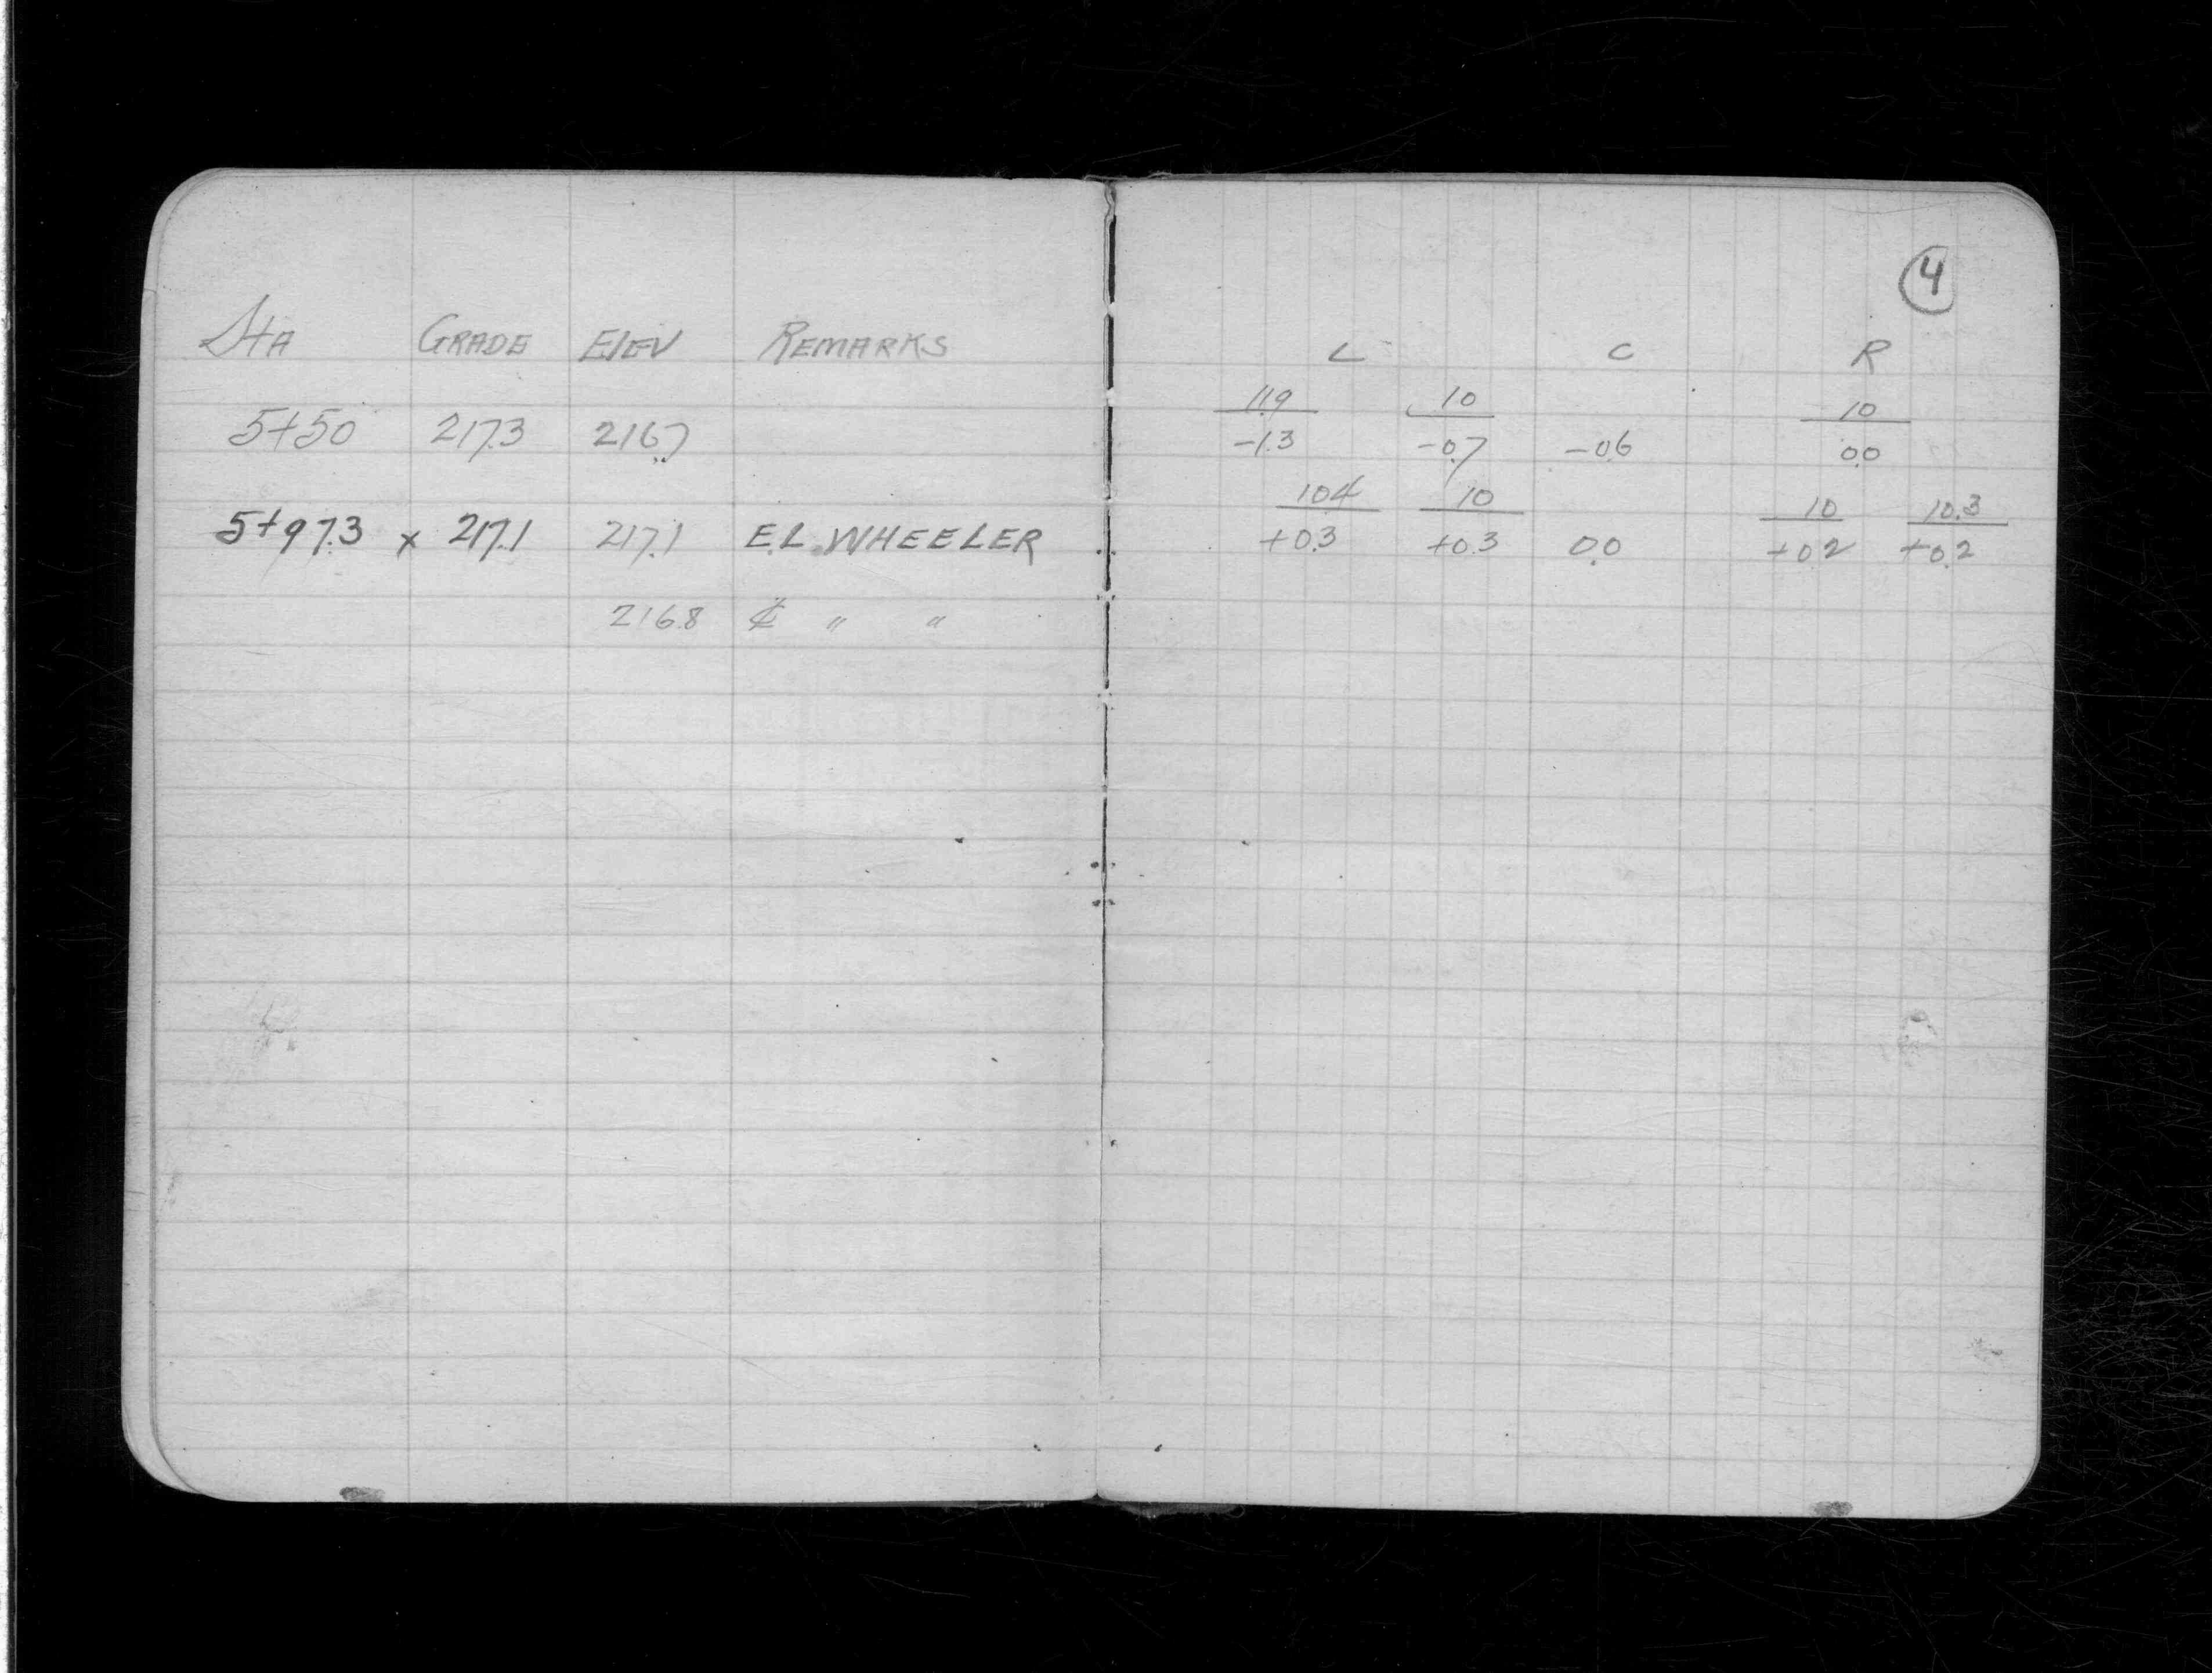 4
Sta GRADE ElEV REMARKS L C R
11.9 10 10
5+50 217.3 216.7 -1.3 -0.7 -0.6 0.0
10.4 10 10 10.3
5+97.3 x 217.1 217.1 E.L. WHEELER +0.3 +0.3 0.0 +0.2 +0.2
216.8 ℄ " "